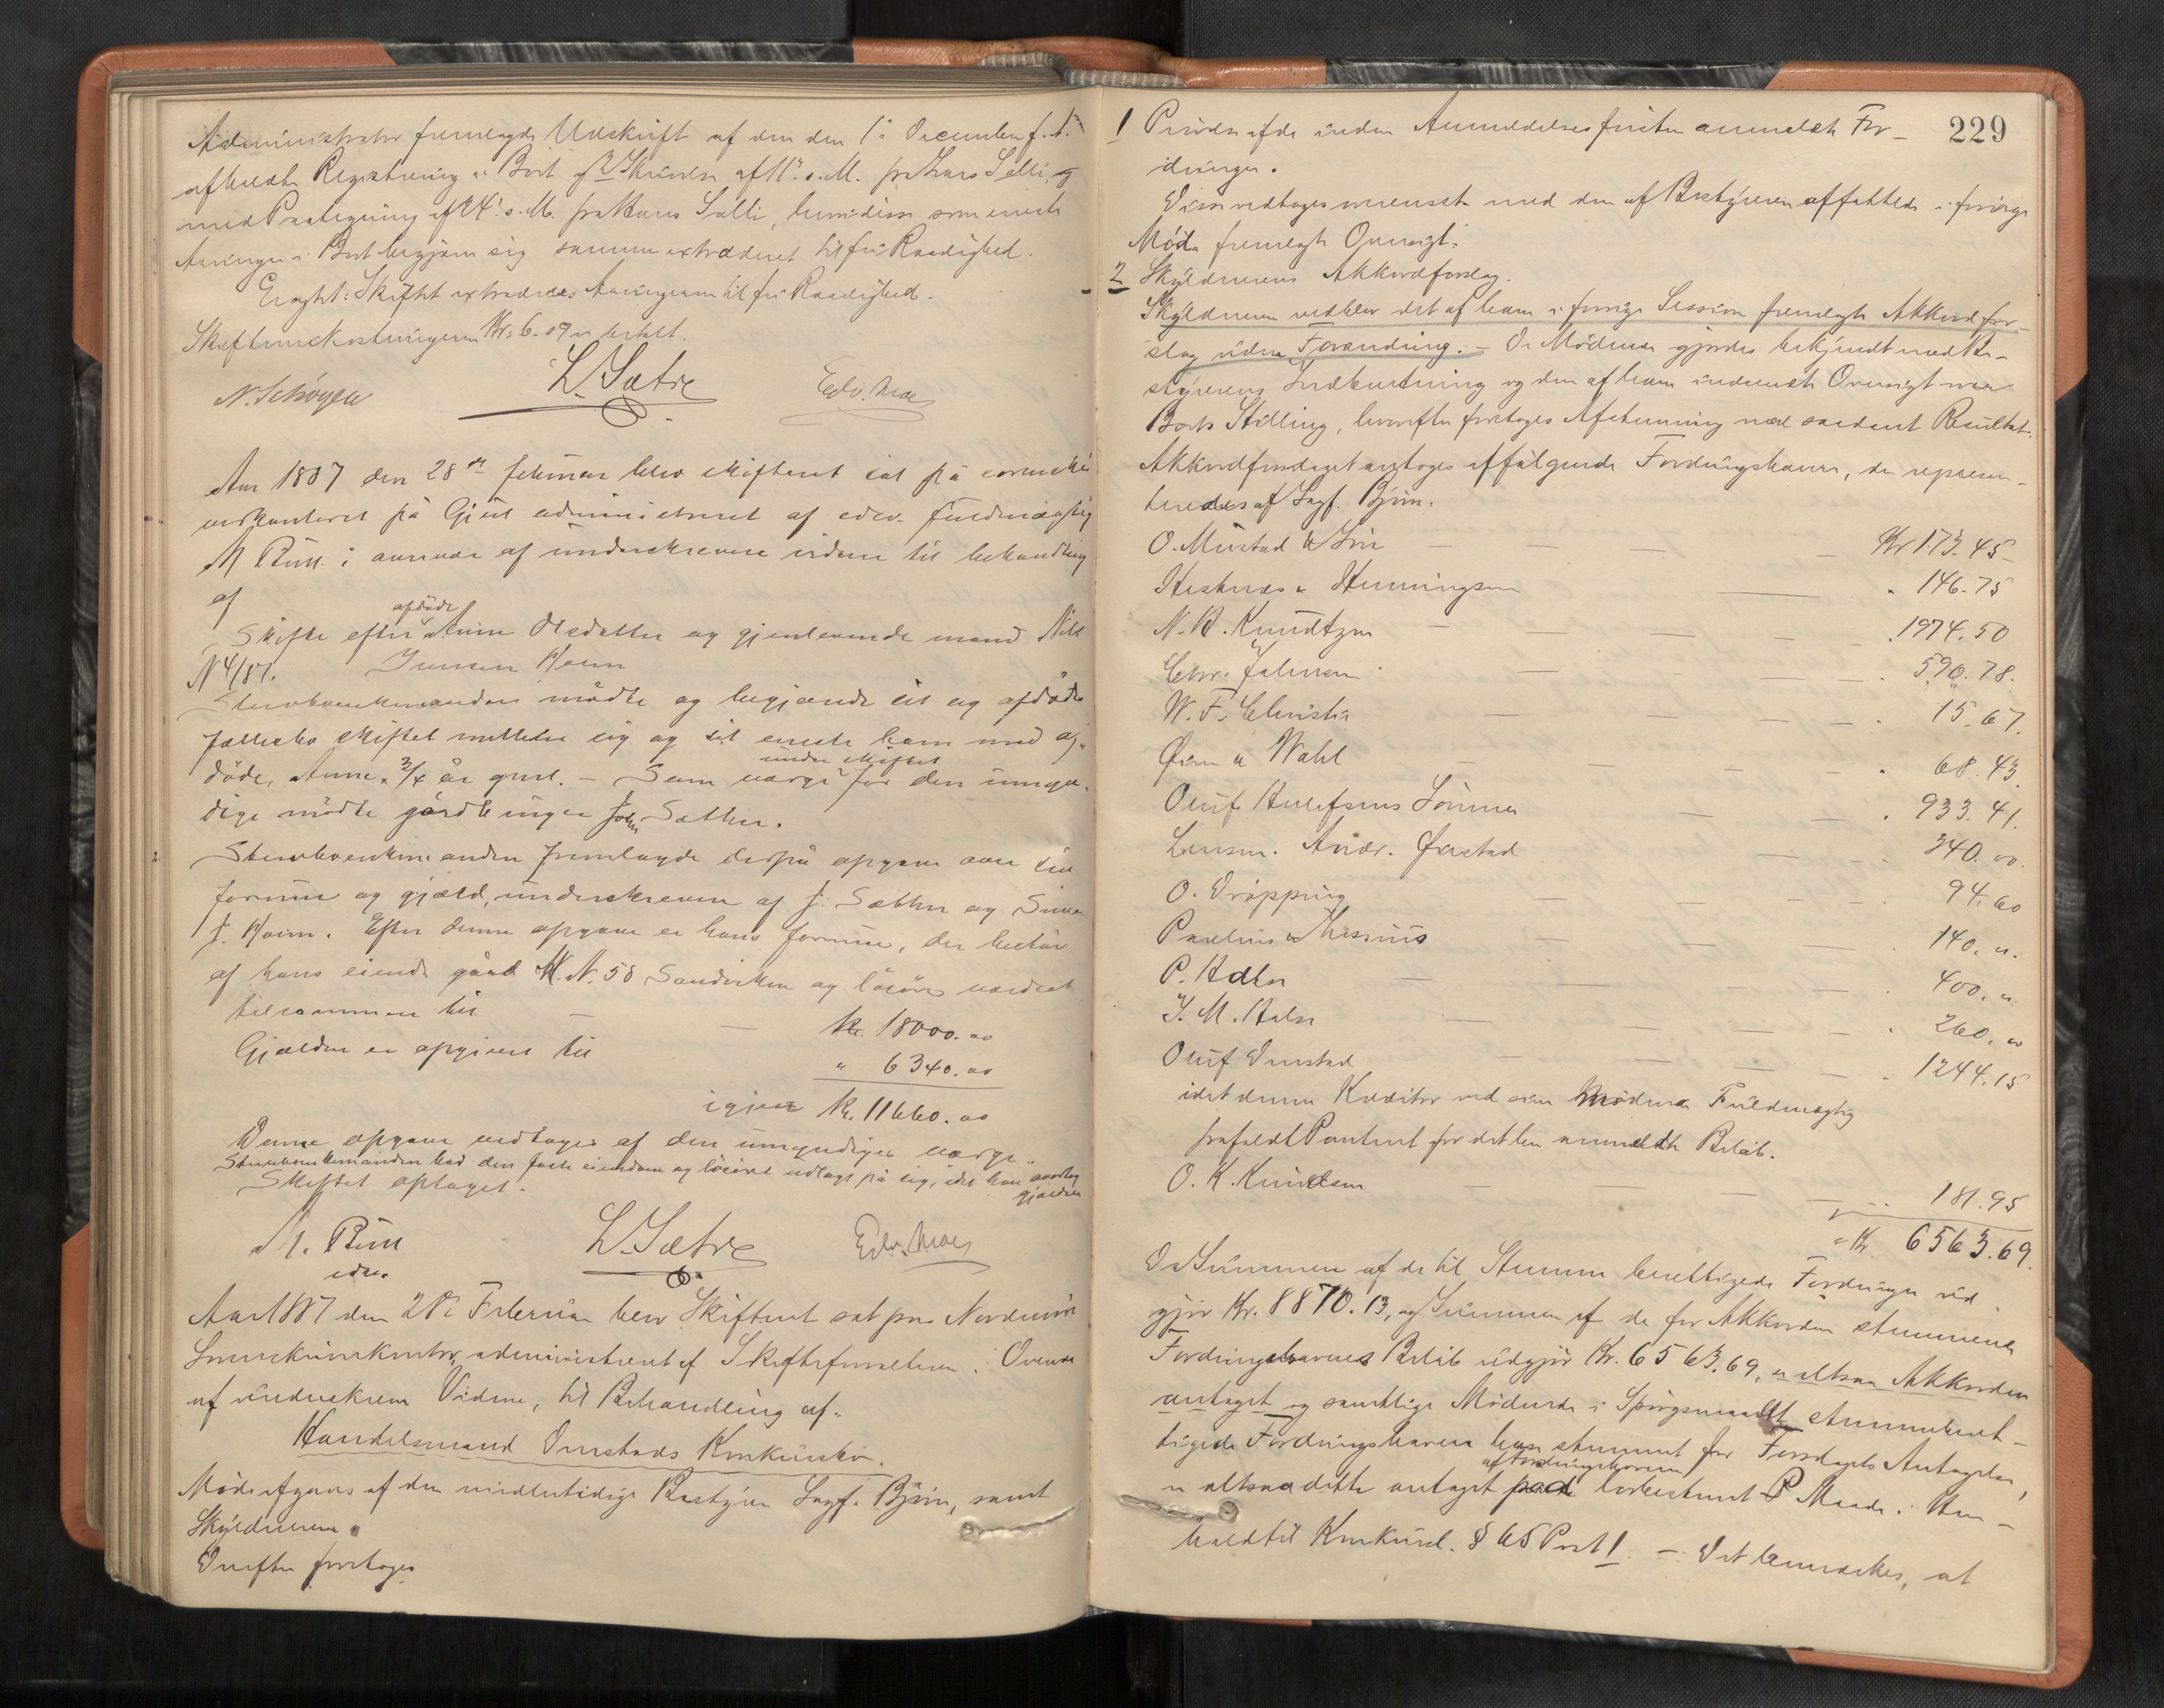 Administrator fremlagde Udskrift af den den 1ª December f. A.
afholdte Registrering i Boet og Skrivelse af 11te s. M. fra Hans Solli, og
med Paategning af 24. s. M. fra Hans Solli, hvori disse som eneste
Arvinger i Boet begjærer sig samme extraderet til fri Raadighed.
Eragtet: Skiftet extraderes Arvingerne til fri Raadighed.
Skifteomkostningerne Kr. 6.09 er betalt.
N. Schøyen L. Sætre Edv. Moe
Aar 1887 den 28de februar blev skifteret sat på sorenskri-
verkontoret på Gjøül administreret af edsv. fuldmægtig
M Büll i nærvær af underskrevne vidner til behandling
af
Skifte efter afdöde Anne Olsdatter og gjenlevende mand Nils
N 4/87. Jensen Hoem
Stervboenkemanden mödte og begjærede sit og afdödes
fællesbo skiftet mellem sig og sit eneste barn med af-
döde, Anne, 3/4 år gml. – Som værge under skiftet for den umyn-
dige mödte gårdbruger John Sæther.
Stervboenkemanden fremlagde derpå opgave over sin
formue og gjæld, underskreven af J. Sæther og Siver
J. Hoem. Efter denne opgave er hans formue, der består
af hans eiende gård M. N. 58 Sandviken og lösöre værdsat
tilsammen til – – kr. 18000.00
Gjælden er opgivet til " 6340.00
igjen kr. 11660.00
Denne opgave vedtoges af den umyndiges værge.
Stervboenkemanden bad den faste eiendom og lösöret udlagt på sig, idet han overtog
gjælden
Skiftet optaget.
M. Büll L. Sætre Edv. Moe
edsv.
Aar 1887 den 28de Februar blev Skifteret sat paa Nordmøre
Sorenskriverkontor, administreret af Skifteforvalteren i Overvær
af underskrevne Vidner, til Behandling af
Handelsmand Omstads Konkursbo.
Møde afgaves af den midlertidige Bestyrer Sagf. Bjørn, samt
Skyldneren.
Derefter foretoges
229
1 Prøvelse af de inden Anmeldelsesfristen anmeldte For-
dringer.
Disse vedtoges overensst. med den af Bestyreren affattede i forrige
Møde fremlagte Oversigt.
2 Skyldnerens Akkordforslag.
Skyldneren vedblev det af ham i forrige Session fremlagte Akkordfor-
slag uden Forandring. – De Mødende gjordes bekjendt med Be-
styrerens Indberetning og den af ham indsendte Oversigt over
Boets Stilling, hvorefter foretoges Afstemning med saadant Resultat:
Akkordforslaget antoges af følgende Fordringshavere, der repræsen-
teredes af Sagf. Bjørn:
O. Mustad & Søn – – – Kr 173.45
Hestnes & Henningsen – " 146.75
N. H. Knudtzon – – – 1974.50
Chr. Johnsen – – – 590.78.
W. F. Christie – – – 15.67.
Ørn & Wahl – – – " 68.43
Oluf Aulefsens Sønner – – " 933.41.
Lensm. Andr. Ørstad – – 340.00.
O. Drøpping – – – 94.60
Paulus & Thesius – – – 140. ".
P. Adler – – – 400. ".
J. M. Halse – – – 260. "
Oluf Omstad – – – 1244.15
idet denne Kreditor ved sin mødende Fuldmægtig
frafaldt Panteret for det hele anmeldte Beløb.
O. K. Knudsen – – – 181.95
= Kr. 6563.69.
Da Summen af de til Stemme berettigede Fordringer ud-
gjør Kr. 8870.13, og Summen af de for Akkorden stemmende
Fordringshaveres Beløb udgjør Kr. 6563.69, er altsaa Akkorden
antaget og samtlige Mødende i Spørgsmaalet stemmeberet-
tigede Fordringshavere have stemmet for Forslagets Antagelse,
er altsaa dette antaget af Fordringshaverne paa lovbestemt Maade i Hen-
hold til Konkursl. § 65 Post 1. – Det bemærkes, at